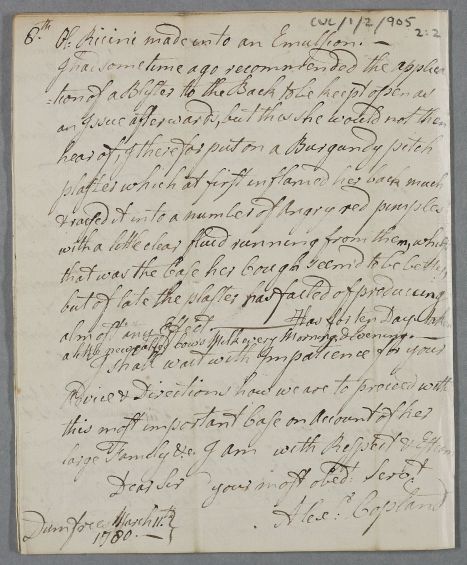 CUL/1/2/905
2:2
6th. Ol: Ricini made into an Emulsion. —
I had some time ago recommended the applica
=tion of a Blister to the Back to be keept open as
an Issue afterwards, but this she would not then
hear of, I therefor put on a Burgundy pitch
plaster which at first inflamed her back much
& raised it into a number of Angry red pimples
with a little clear fluid running from them, while
that was the Case her Cough seem'd to be better,
but of late the plaster has failed of producing
almost any Effect. — Has for ten Days
a little new Cows Milk every Morning & evening. —
I shall wait with Impatience for your
Advice & Directions how we are to proceed with
this most important Case on Account of her
large Family &c. I am with Respect & Esteem
Dear Sir your most obedt. Servt.
Alexr. Copland
Dumfries March 11th.
1780. —